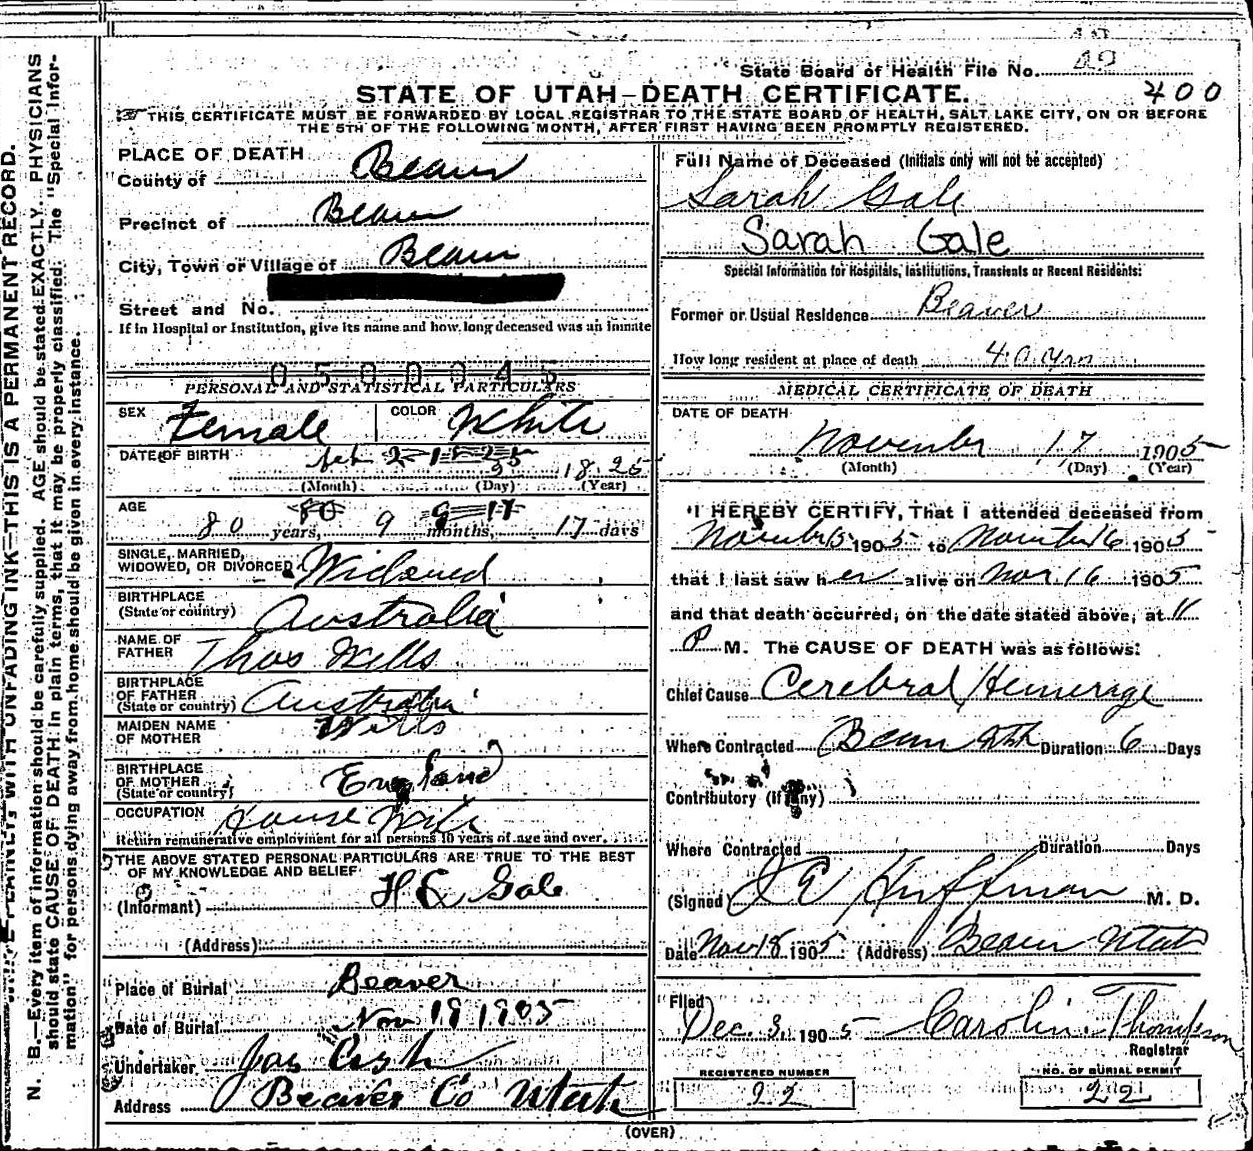 State Board of Health File No.
400
STATE OF UTAH—DEATH CERTIFICATE.
THIS CERTIFICATE MUST BE FORWARDED BY LOCAL REGISTRAR TO THE STATE BOARD OF HEALTH, SALT LAKE CITY, ON OR BEFORE
THE 5TH OF THE FOLLOWING MONTH, AFTER FIRST HAVING BEEN PROMPTLY REGISTERED.
N. B.—Every item of information should be carefully supplied. AGE should be stated EXACTLY. PHYSICIANS
should state CAUSE OF DEATH in plain terms, that it may be properly classified. The "Special Infor-
mation" for persons dying away from home should be given in every instance.
WITH UNFADING INK—THIS IS A PERMANENT RECORD.
PLACE OF DEATH
County of Beaver
Precinct of Beaver
City, Town or Village of Beaver
Street and No.
If in Hospital or Institution, give its name and how long deceased was an inmate
0500045
PERSONAL AND STATISTICAL PARTICULARS
SEX Female COLOR White
DATE OF BIRTH Feb 2 1825
18 25
(Month) (Day) (Year)
AGE 80 9 17
80 years, 9 months, 17 days
SINGLE, MARRIED,
WIDOWED, OR DIVORCED Widowed
BIRTHPLACE
(State or country) Australia
NAME OF
FATHER Thos Wells
BIRTHPLACE
OF FATHER
(State or country) Australia
MAIDEN NAME
OF MOTHER Wills
BIRTHPLACE
OF MOTHER
(State or country) England
OCCUPATION House Wife
Return remunerative employment for all persons 10 years of age and over.
THE ABOVE STATED PERSONAL PARTICULARS ARE TRUE TO THE BEST
OF MY KNOWLEDGE AND BELIEF
(Informant) H E Gale
(Address)
Place of Burial Beaver
Date of Burial Nov 19 1905
Undertaker Jos Cash
Address Beaver Co Utah
Full Name of Deceased (Initials only will not be accepted)
Sarah Gale
Sarah Gale
Special Information for Hospitals, Institutions, Transients or Recent Residents:
Former or Usual Residence Beaver
How long resident at place of death 40 yrs
MEDICAL CERTIFICATE OF DEATH
DATE OF DEATH
November 17 1905
(Month) (Day) (Year)
I HEREBY CERTIFY, That I attended deceased from
November 1905 to November 16 1905
that I last saw her alive on Nov 16 1905
and that death occurred, on the date stated above, at 11
P M. The CAUSE OF DEATH was as follows:
Chief Cause Cerebral Hemerage
Where Contracted Beaver Utah Duration 6 Days
Contributory (if any)
Where Contracted Duration Days
(Signed) J E Huffman M. D.
Date Nov 18 1905 (Address) Beaver Utah
Filed
Dec. 3, 1905 Carolin Thompson
Registrar
REGISTERED NUMBER
22
NO. OF BURIAL PERMIT
22
(OVER)